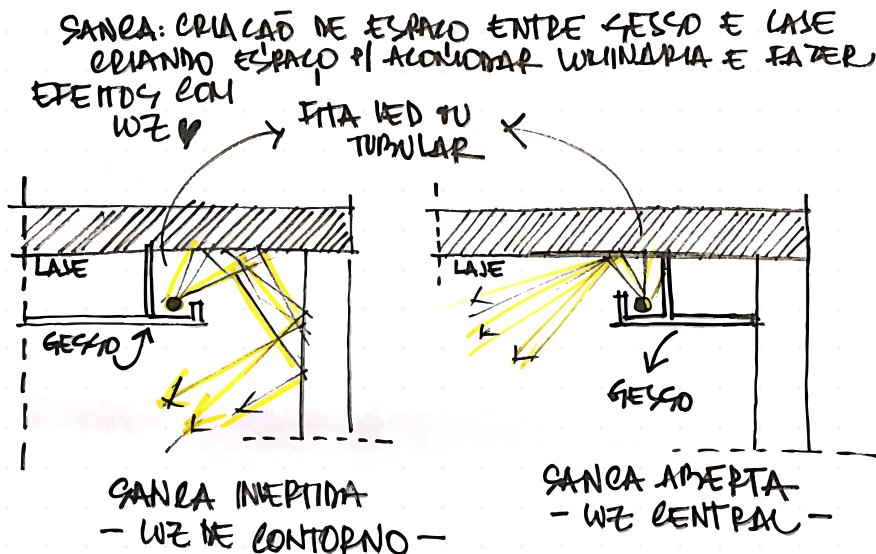 SANCA: CRIAÇÃO DE ESPAÇO ENTRE GESSO E LAJE
CRIANDO ESPAÇO P/ ACOMODAR LUMINÁRIA E FAZER
EFEITOS COM
LUZ ♥
FITA LED OU
TUBULAR
LAJE
GESSO
SANCA INVERTIDA
- LUZ DE CONTORNO -
LAJE
GESSO
SANCA ABERTA
- LUZ CENTRAL -